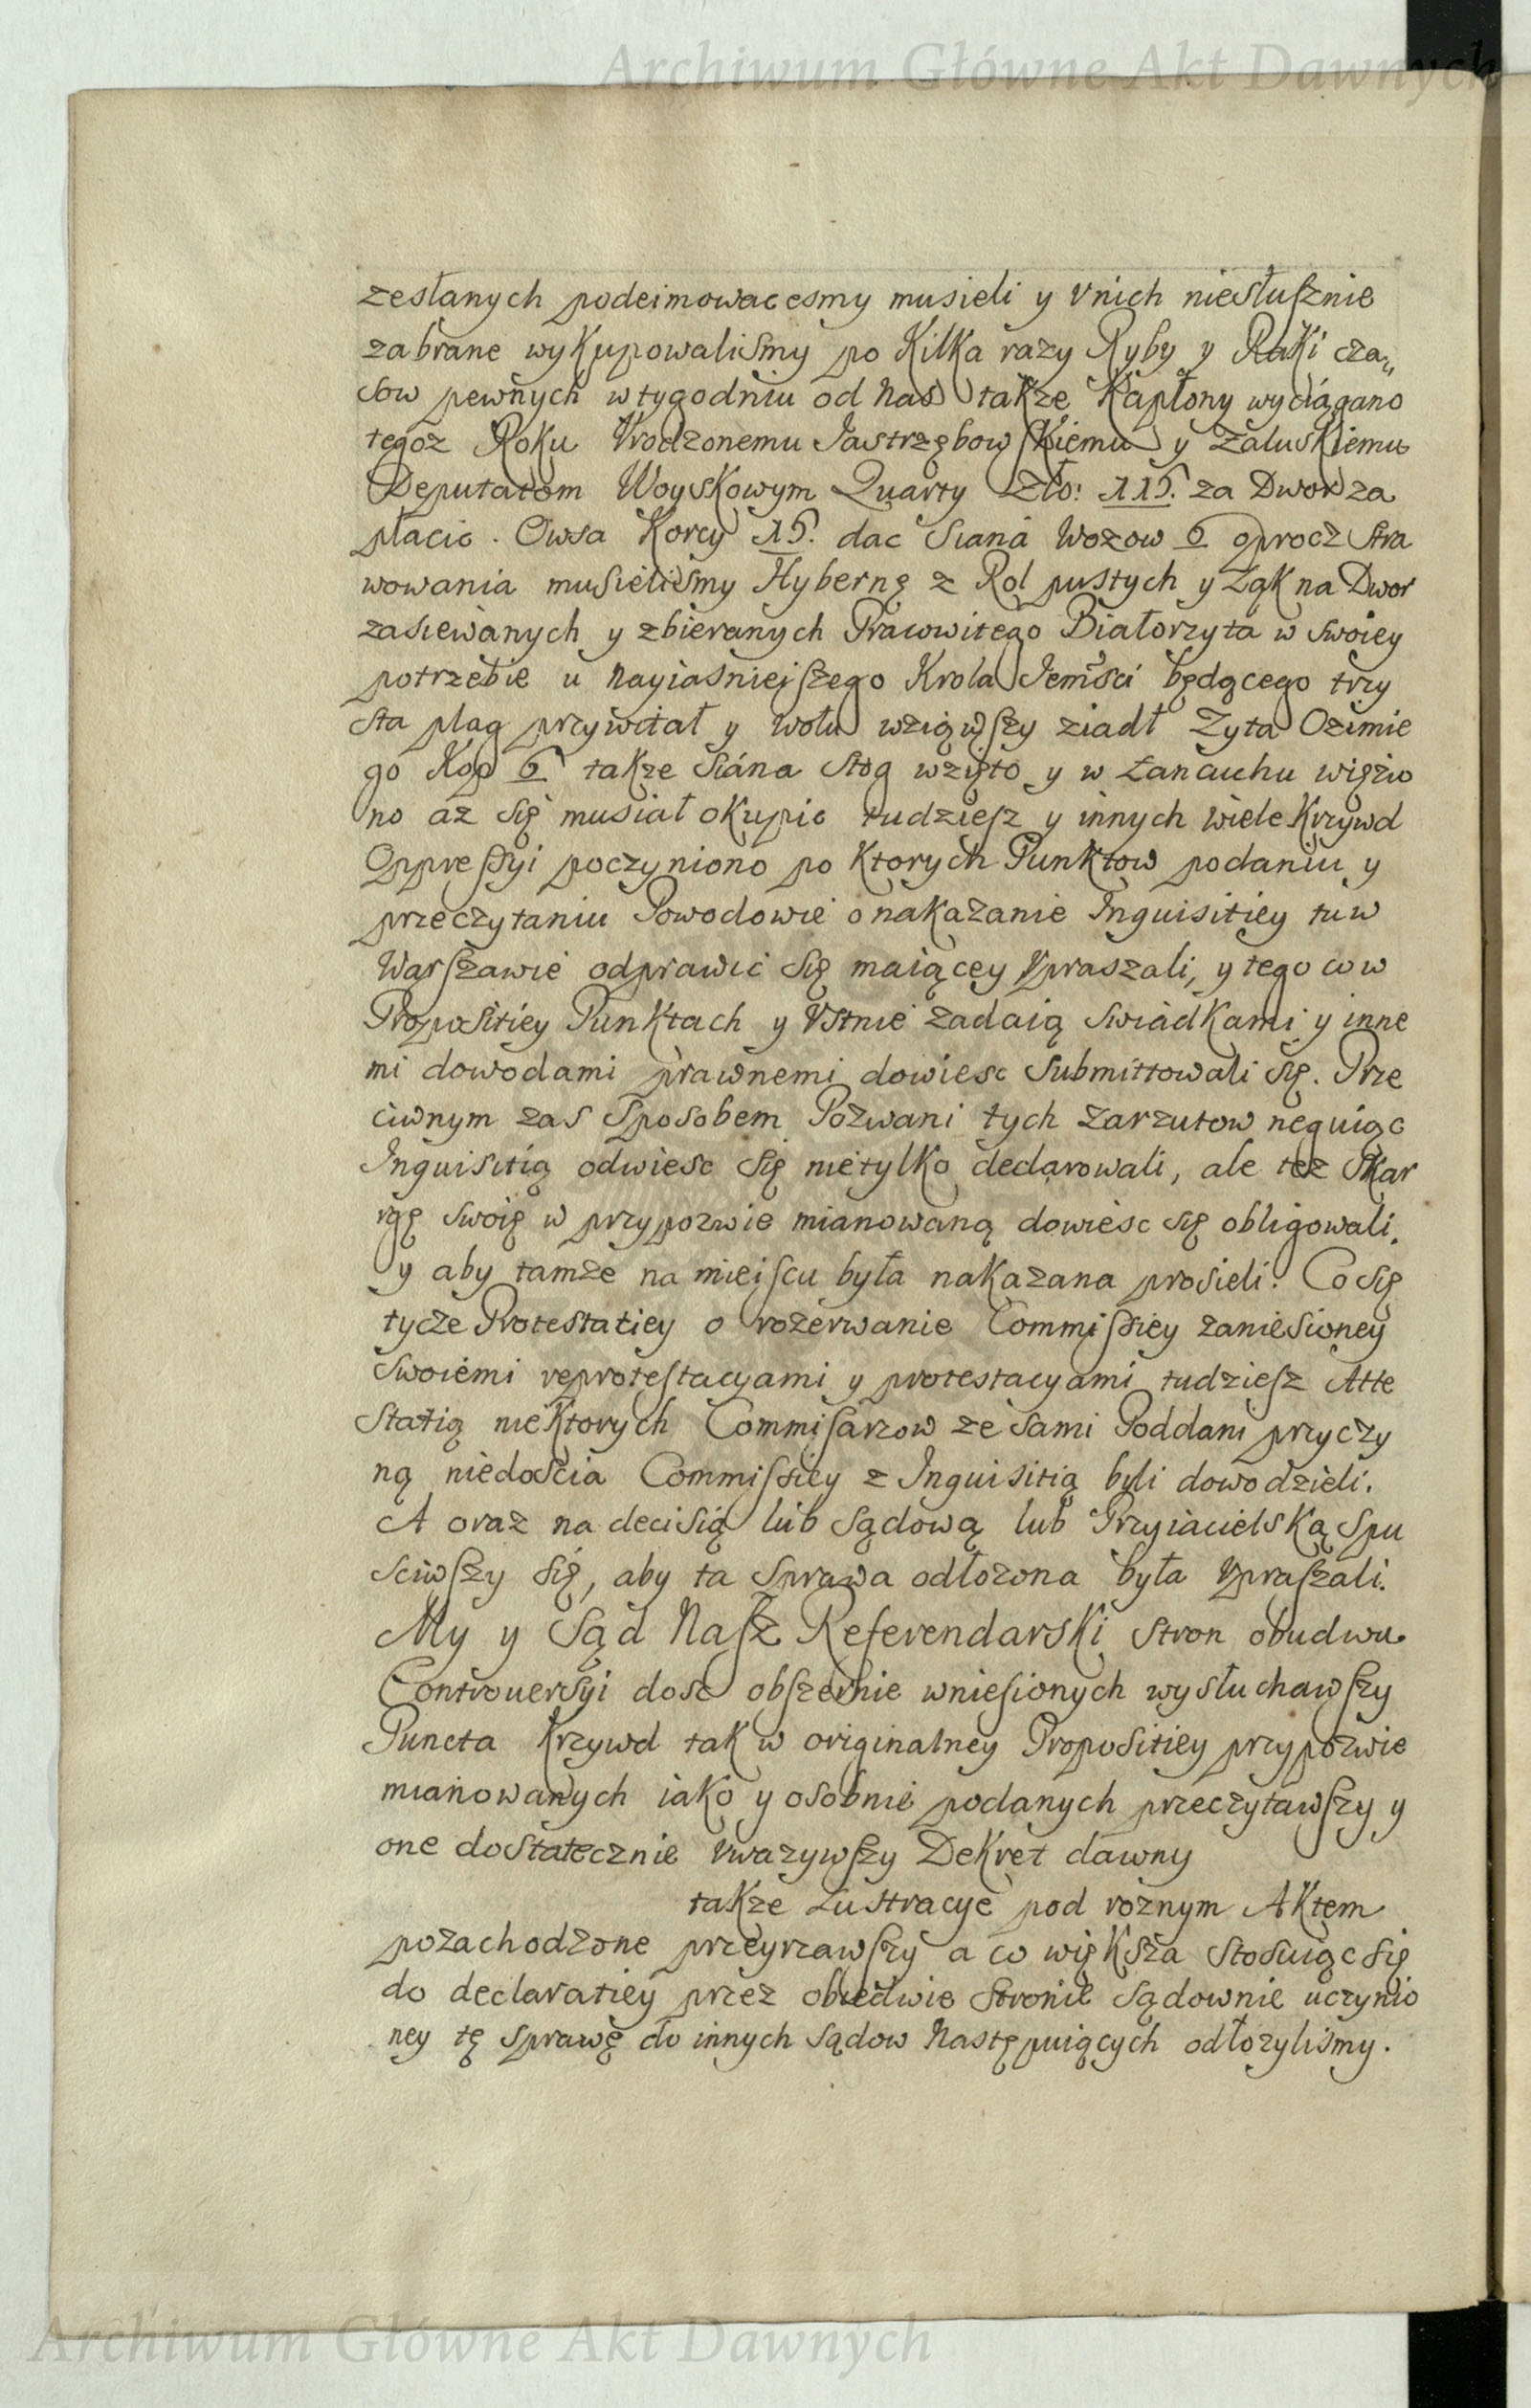 Archiwum Główne Akt Dawnych
zesłanych podeimowacesmy musieli y Vnich niesłusznie
zabrane wykupowalismy po Kilka razy Ryby y Raki cza„
sow pewnych w tygodniu od Nas także Kapłony wyciągano
tegoz Roku Vrodzonemu Jastrzębowskiemu y Załuskiemu
Deputatom Woyskowym Quarty Zło: 115. za Dwor za
płacic. Owsa Korcy 15. dac Siana Wozow 6 oprocz Stra
wowania musielismy Hybernę z Rol pustych y Łąk na Dwor
zasiewanych y zbieranych Pracowitego Białorzyta w swoiey
potrzebie u Nayiasniejszego Krola Jemsci będącego trzy
sta plag przywitał y wołu wziąwszy ziadł Zyta Ozimie
go Kop 6 takze Siana Stog wzięto y w Łancuchu więzio
no az się musiał okupic tudziesz y innych wiele Krzywd
Oppressyi poczyniono po Ktorych Punktow podaniu y
przeczytaniu Powodowie o nakazanie Inquisitiey tu w
Warszawie odprawic się maiącey Vpraszali, y tego co w
Propositiey Punktach y Vstnie zadaią Swiadkami y inne
mi dowodami prawnemi dowiesc submittowali się. Prze
ciwnym zas Sposobem Pozwani tych zarzutow neguiąc
Inquisitią odwiesc się nietylko declarowali, ale tez Skar
rgę swoię w przypozwie mianowaną dowiesc się obligowali.
y aby tamze na mieiscu była nakazana prosieli. Co się
tycze Protestatiey o rozerwanie Commissiey zaniesioney
swoiemi reprotestacyami y protestacyami tudziesz Atte
statią niektorych Commisarzow ze sami Poddani przyczy
ną niedoscia Commissiey z Inquisitią byli dowodzieli.
A oraz na decisią lub sądową lub Przyiacielską spu
sciwszy się, aby ta sprawa odłozona była Vpraszali.
My y Sąd Nasz Referendarski stron obudwu
Controuersyi dosc obszernie wniesionych wysłuchawszy
Puncta Krzywd tak w originalney Propositiey przypozwie
mianowanych iako y osobnie podanych przeczytawszy y
one dostatecznie Vwazywszy Dekret dawny
takze Lustracye pod roznym Aktem
pozachodzone przeyrzawszy a co większa stosuiąc się
do declaratiey przez obiedwie stronie sądownie uczynio
ney tę sprawę do innych sądow Następuiących odłozylismy.
Archiwum Główne Akt Dawnych